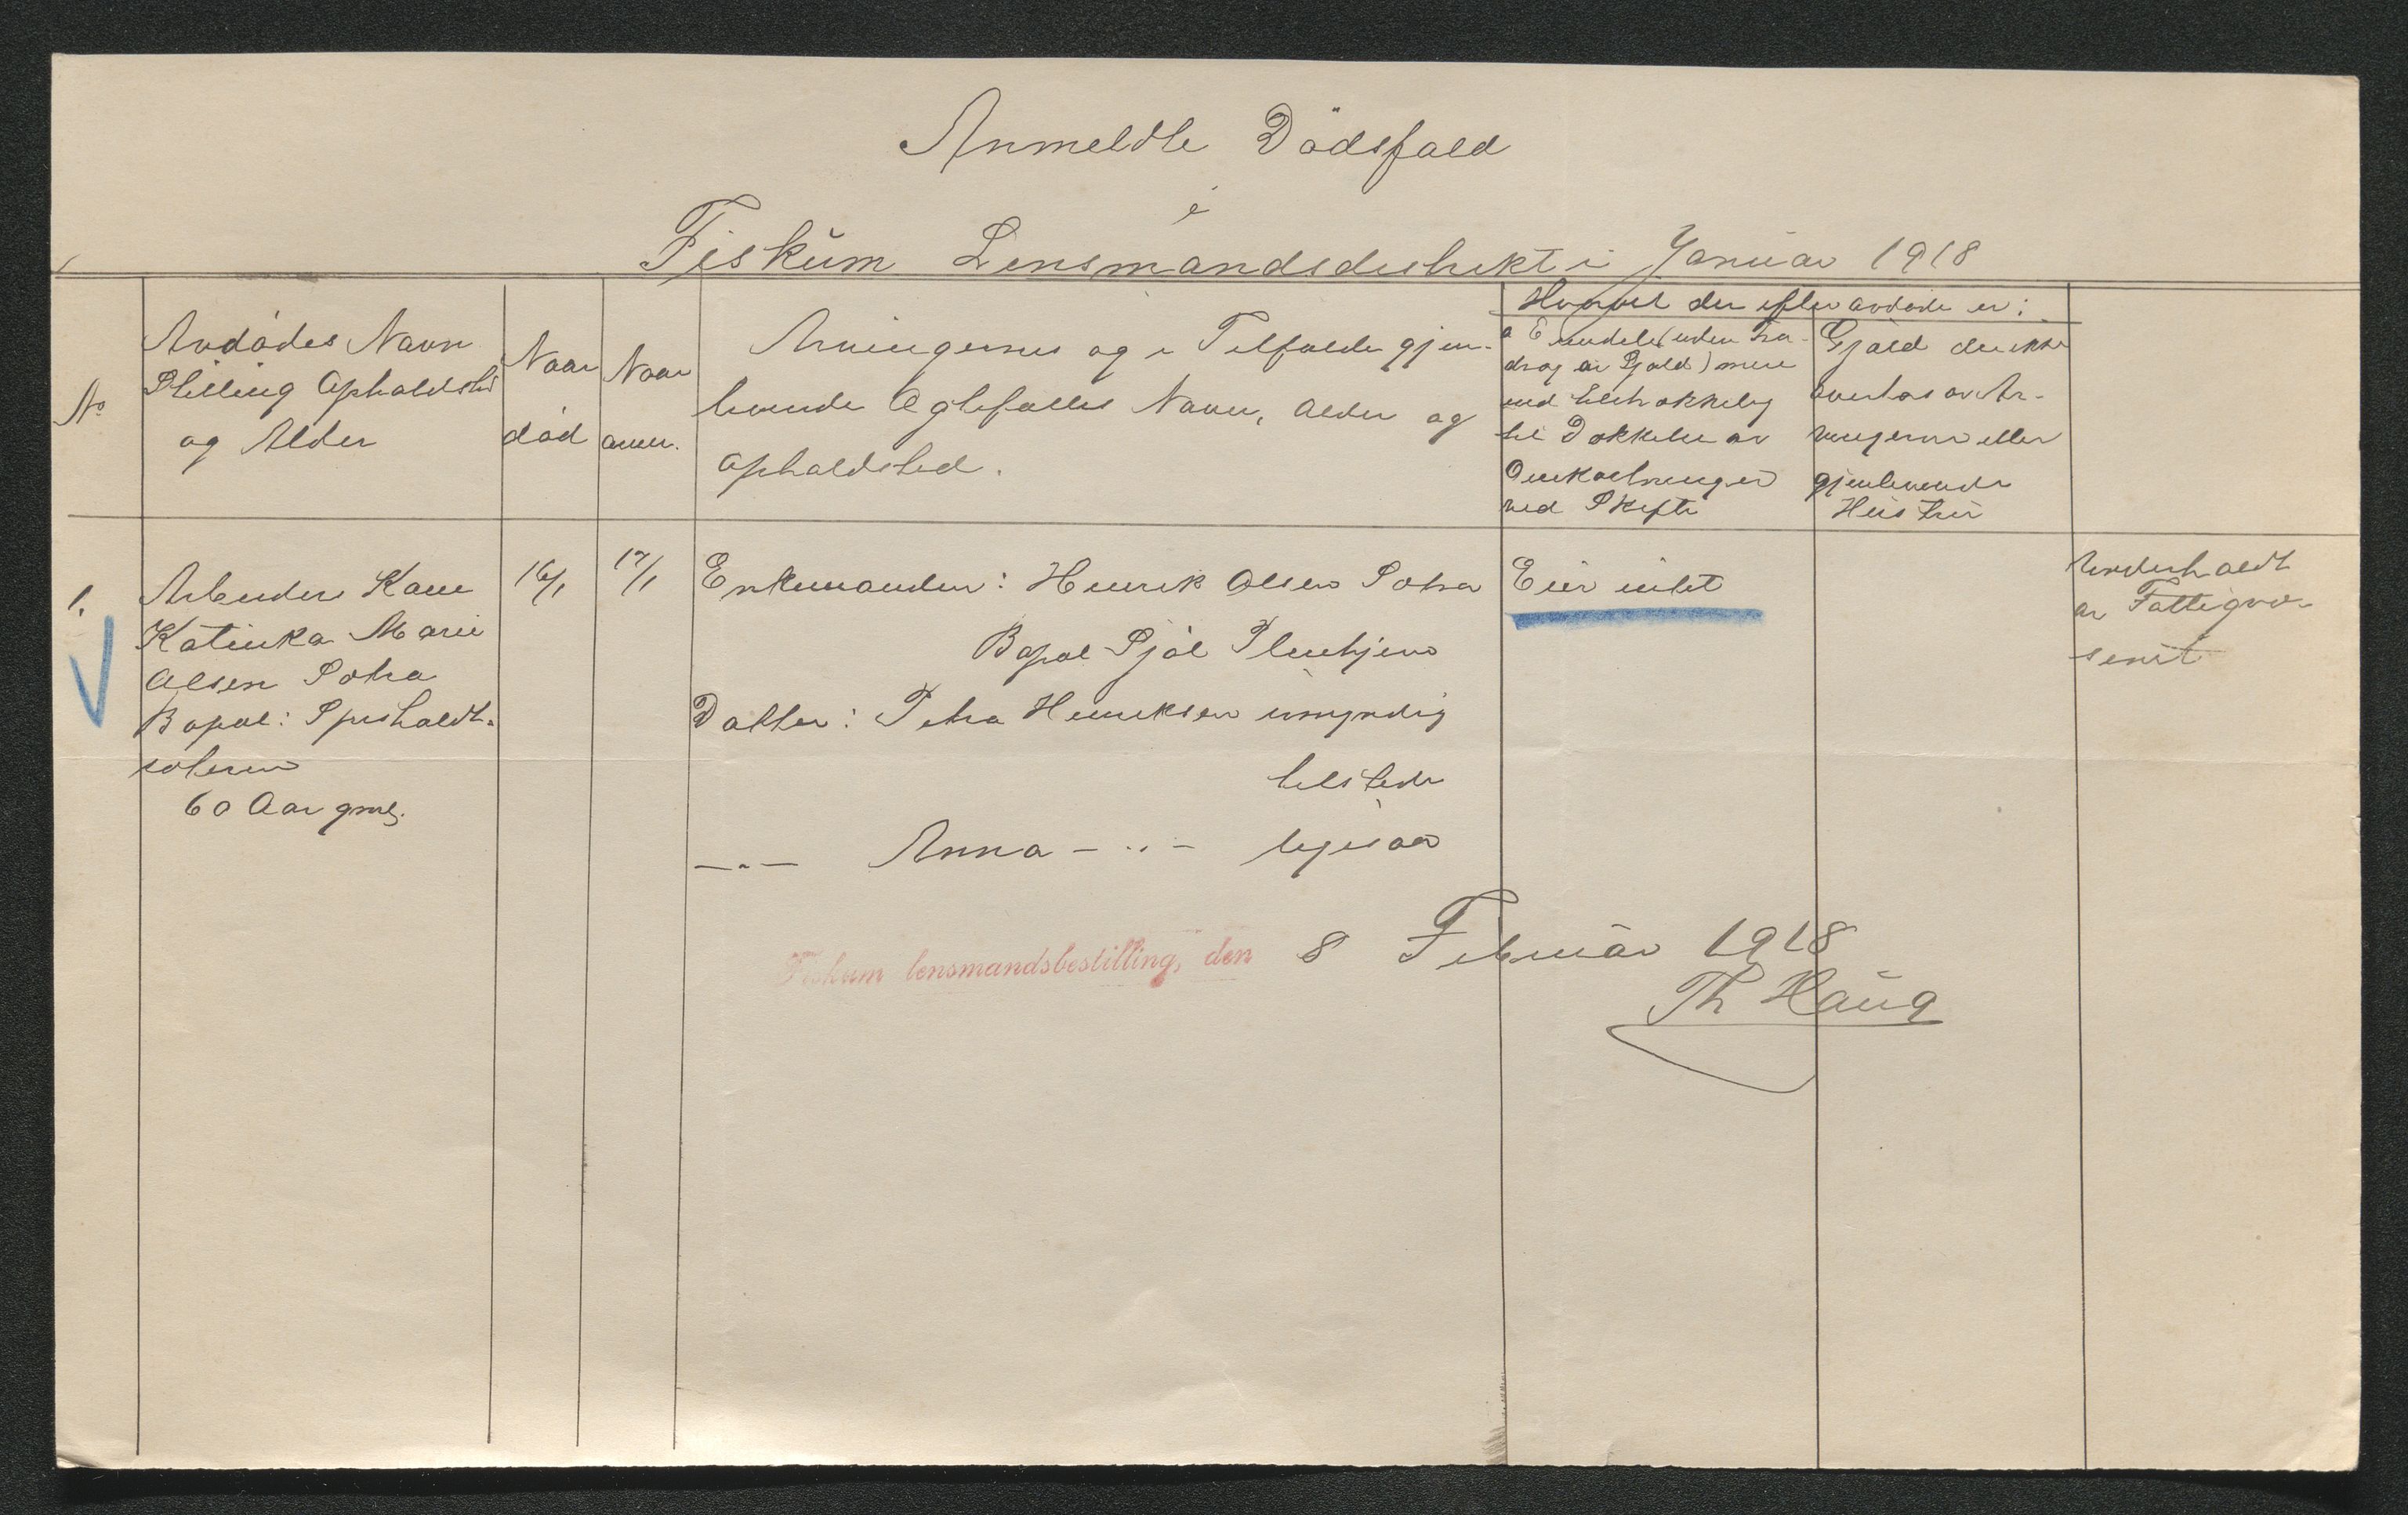 Anmeldte Dödsfald
i
Fiskum Lensmandsdistrikt i Januar 1918
No
Avdödes Navn
Stilling Opholdsted
og Alder
Naar
död
Naar
anm.
Arvingernes og i Tilfælde gjen-
levende Ægtefælles Navn, Alder og
Opholdsted.
Hvorvidt der efter avdöde er:
a Eiendele (uden fra-
drag av Gjæld) mere
end tilstrækkelig
til Dækkelse av
Omkostninger
ved Skifte
Gjæld der ikke
overtas av Ar-
vingerne eller
gjenlevende
Hustru
1.
Arbeider Kone
Katinka Marie
Olsen Sotra
Bopæl:
60 Aar gml.
16/1
17/1
Enkemanden: Henrik Olsen Sotra
Bopæl
Datter: Petra Henriksen umyndig
tilstede
—"— Anna — " — ligesaa
Eier intet
Underholdt
av Fattigvæ-
senet
Fiskum lensmandsbestilling, den 8 Februar 1918
Th Haug